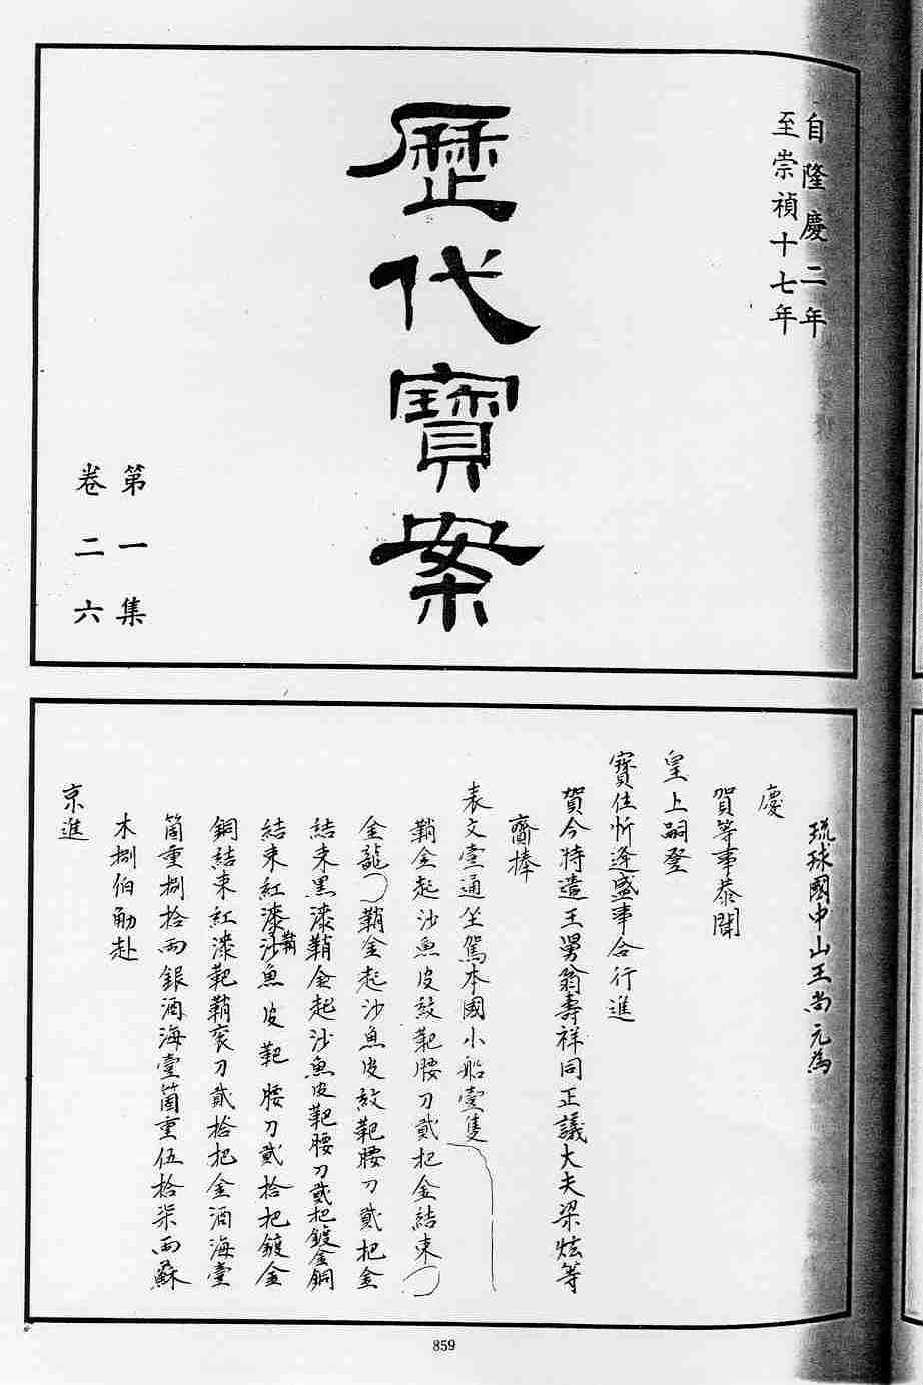 自隆慶二年
至崇禎十七年
歷代寶案
第一集
卷二六
琉球國中山王尚元為
慶
賀等事恭聞
皇上嗣登
寶位忻逢盛事合行進
賀今特遣王舅翁壽祥同正議大夫梁炫等
齎捧
表文壹通坐駕本國小船壹隻
鞘金起沙魚皮紋靶腰刀貳把金結束
金龍鞘金起沙魚皮紋靶腰刀貳把金
結束黑漆鞘金起沙魚皮靶腰刀貳把鍍金銅
結束紅漆鞘沙魚皮靶腰刀貳拾把鍍金
銅結束紅漆靶鞘袞刀貳拾把金酒海壹
箇重捌拾兩銀酒海壹箇重伍拾柒兩蘇
木捌伯觔赴
京進
859